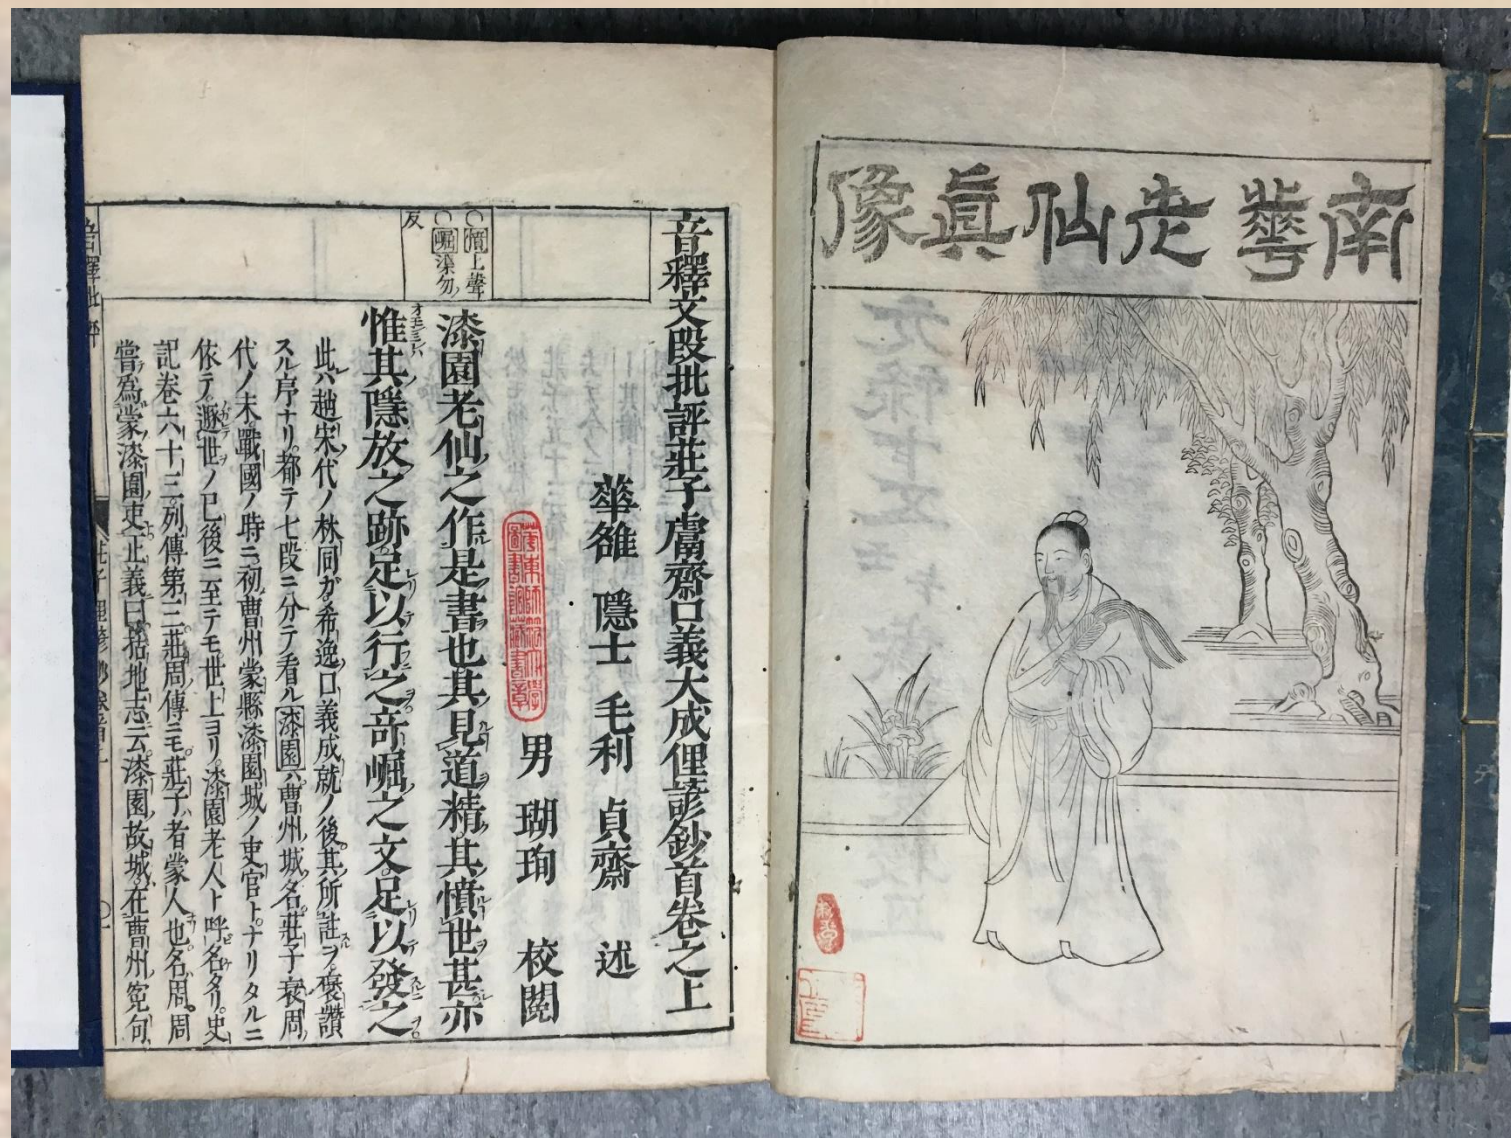 南華老仙真像
音釋文段批評莊子鬳齋口義大成俚諺鈔首卷之上
華雒 隱士 毛利 貞齋 述
男 瑚珣 校閱
○憤上聲
○崛渠勿
反
漆園老仙之作是書也其見道精其憤世甚亦
惟其隱放之跡足以行之奇崛之文足以發之
此ハ趙宋ノ代ノ林同ガ希逸ノ口義成就ノ後其所註ヲ褒讚
スル序ナリ都テ七段ニ分テ看ル漆園ハ曹州ノ城ノ名莊子衰周
代ノ末戰國ノ時ニ初曹州蒙縣漆園城ノ吏官トナリタルニ
依テ遯世ノ已後ニ至テモ世上ヨリ漆園老人ト呼名タリ史
記卷六十三列傳第三莊周傳ニモ莊子ハ者蒙人也名周周
嘗爲蒙漆園吏正義曰括地志云漆園故城在曹州冤句